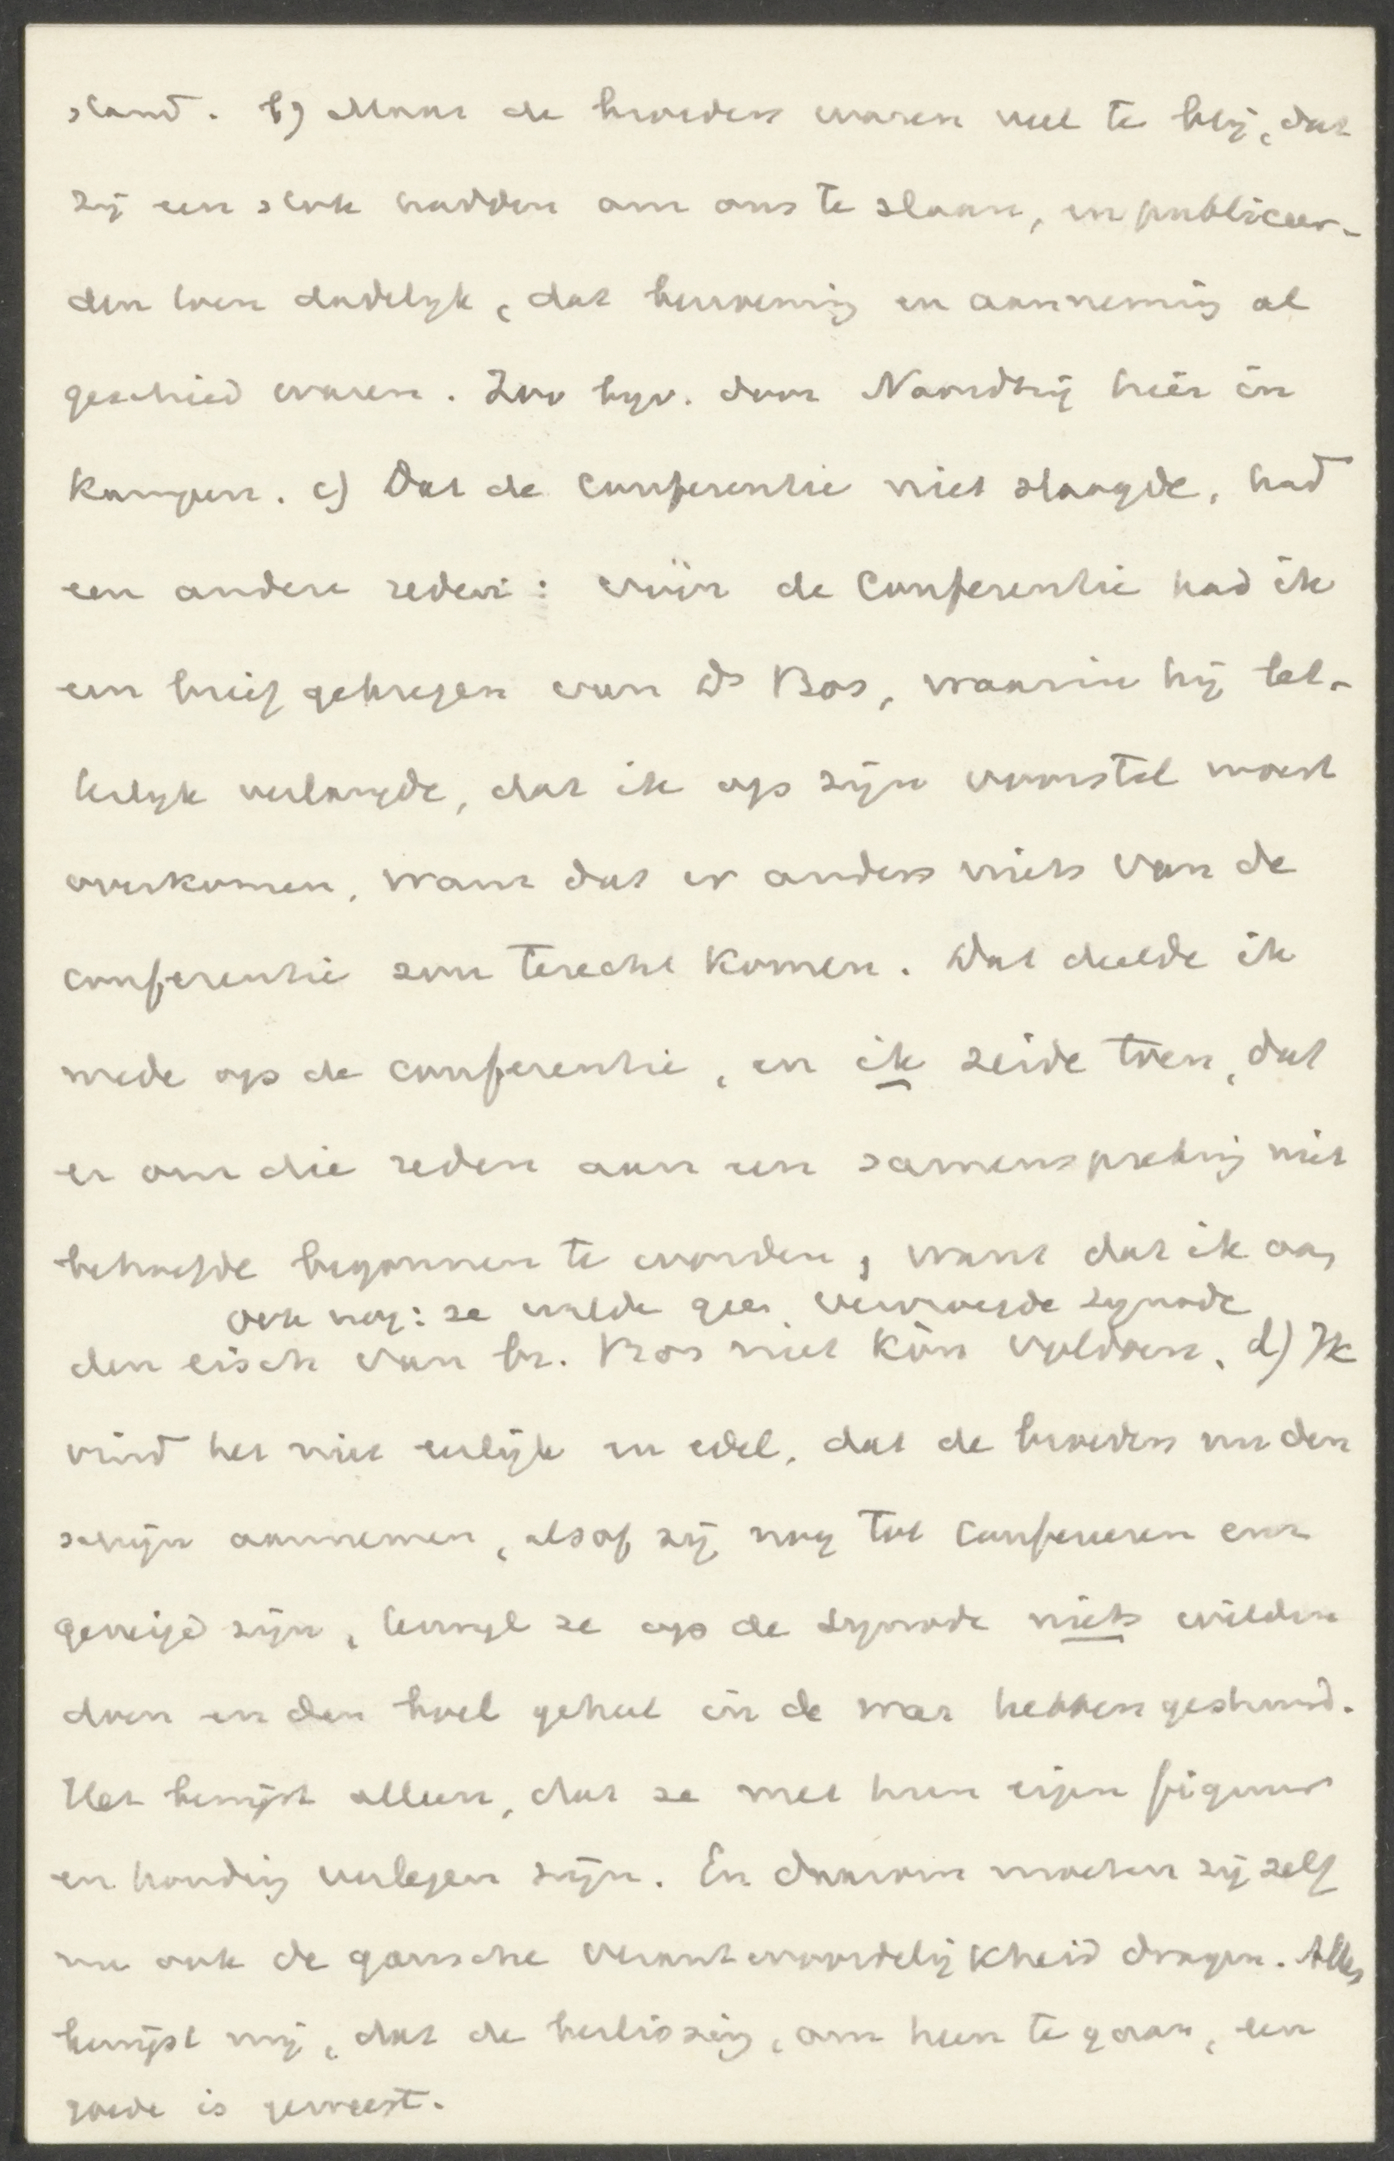 stand. b) Maar de broeders waren veel te blij, dat
zij een stok hadden om ons te slaan, en publiceer-
den toen dadelijk, dat beroeming en aanneming al
geschied waren. Zoo bijv. door Noordtzij hier in
Kampen. c) Dat de conferentie niet slaagde, had
een andere reden: vóór de Conferentie had ik
een brief gekregen van Ds Bos, waarin hij let-
terlijk verlangde, dat ik op zijn voorstel moest
overkomen, want dat er anders niets van de
conferentie zou terecht komen. Dat deelde ik
mede op de conferentie, en ik zeide toen, dat
er om die reden aan een samenspreking niet
behoefde begonnen te worden, want dat ik aan
ook nog: ze wilde geen vervroegde synode
den eisch van br. Bos niet kòn voldoen. d) Ik
vind het niet eerlijk en edel, dat de broeders nu den
schijn aannemen, alsof zij nog tot confereren enz
geneigd zijn, terwijl ze op de synode niets wilden
doen en den boel geheel in de war hebben gestuurd.
Het bewijst alleen, dat ze met hun eigen figuur
en houding verlegen zijn. En daarom moeten zij zelf
nu ook de gansche verantwoordelijkheid dragen. Alles
bewijst mij, dat de beslissing, om heen te gaan, een
goede is geweest.